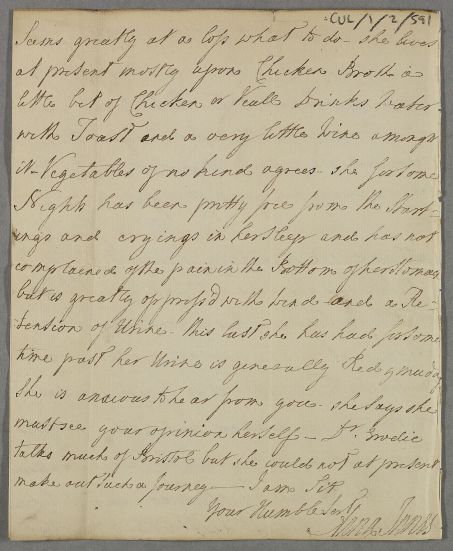 CUL/1/2/591
Seems greatly at a loss what to do - she lives
at present mostly upon Chicken Broth a
little bit of Chicken or Veall Drinks Water
with Toast and a very little Wine amongst
it - Vegetables of no kind agrees - she for some
Nights has been pretty free from the Start-
ings and cryings in her sleep and has not
complained of the pain in the Bottom of her stomach
but is greatly oppress'd with Wind - and a Re-
tension of Urine - this last she has had for some
time past her Urine is generally Red & muddy
She is anxious to hear from you - she says she
must see your opinion herself - Dr. Brodie
talks much of Bristol but she could not at present
make out such a Journey - I am Sir
Your Humble Servt
Anna Innes